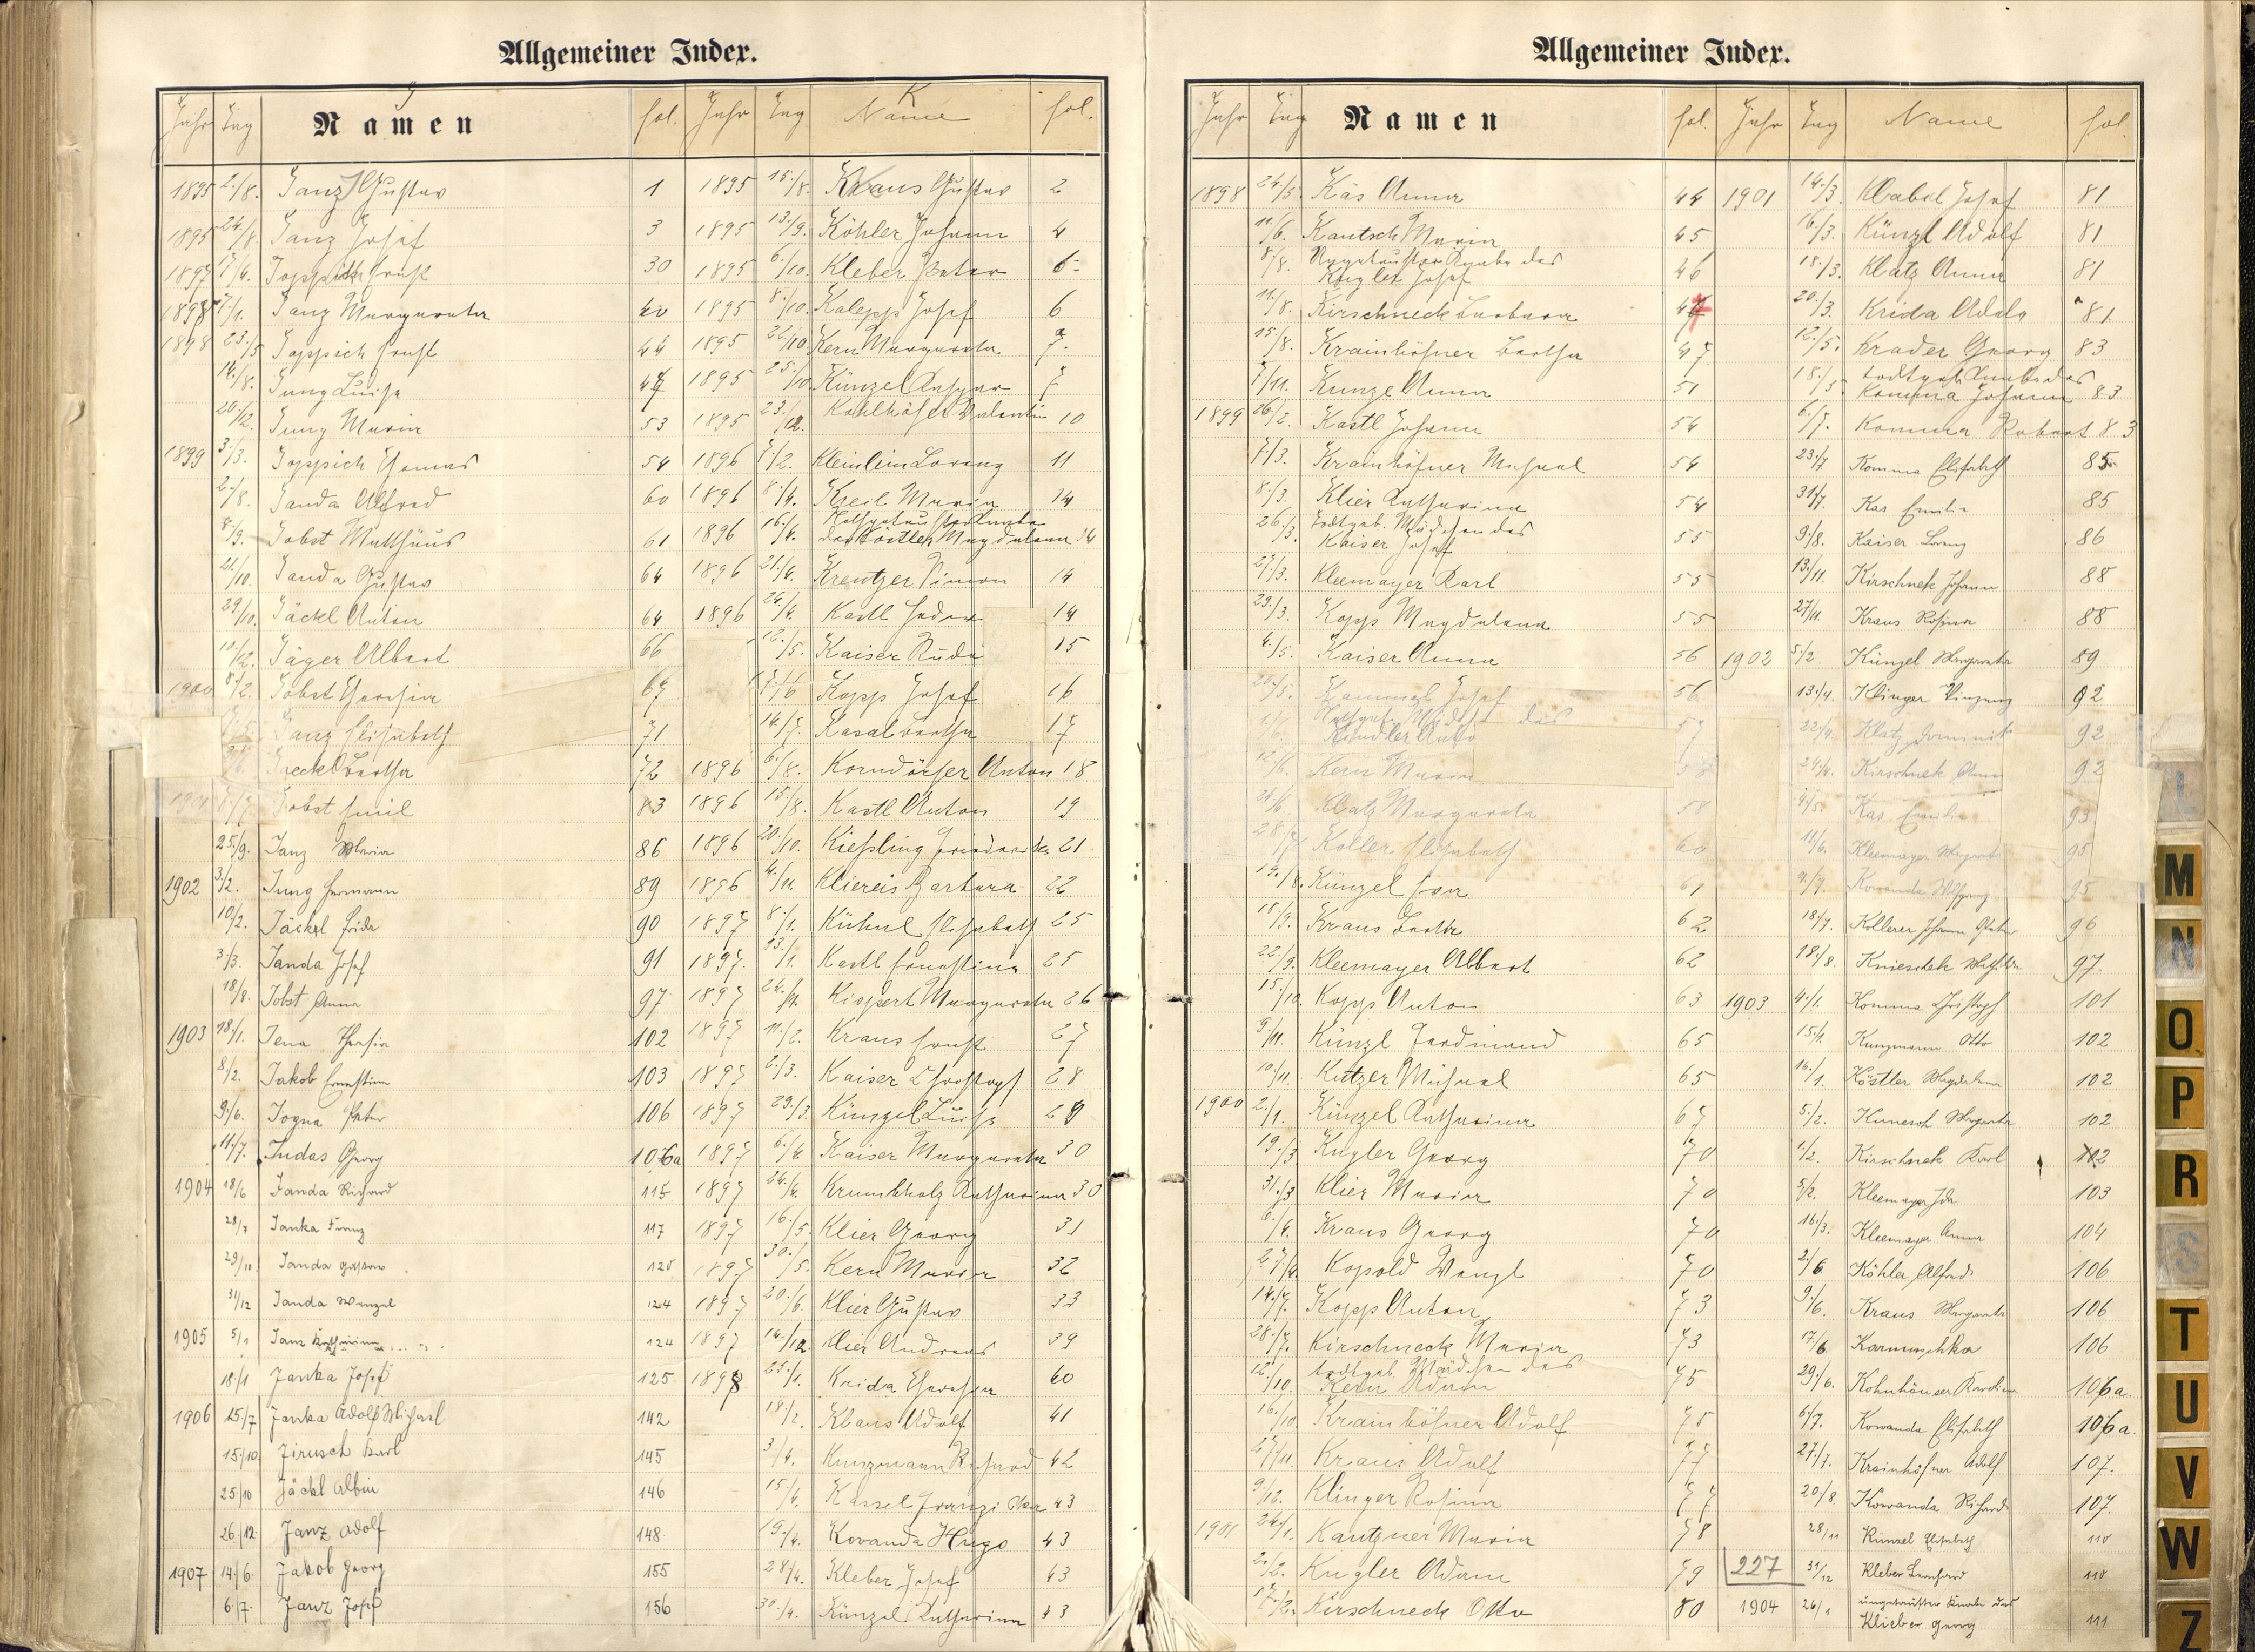 Allgemeiner Index.
J K
Jahr Tag Namen fol. Jahr Tag Name fol.
1895 2./8. Janz Gustav 1 1895 15./8. Kraus Gustav 2
1895 24./8. Janz Josef 3 1895 13./9. Köhler Johann 4
1897 17/4. Joppich Ernst 30 1895 6./10. Kleber Peter 6
1898 7/1. Janz Margareta 40 1895 8./10. Kalepp Josef 6
1898 23./5 Joppich Ernst 44 1895 22/10 Kern Margareta 7.
14./8. Jung Luise 47 1895 25./10. Künzel Kaspar 7
20/12. Jung Maria 53 1895 23./12. Kohlhöfer Valentin 10
1899 3/3. Joppich Thomas 54 1896 7/2. Kleinlein Lorenz 11
2./8. Janda Alfred 60 1896 8./4. Kreil Maria 14
8./9. Jobst Matthäus 61 1896 16./4. Nothgetaufter Knabe
der Köstler Magdalena 14
21./10. Janda Gustav 64 1896 21./4. Kreutzer Simon 14
29/10. Jäckl Anton 64 1896 24./4. Kastl 14
10/12. Jäger Albert 66 12./5. Kaiser Rudi 15
1900 8./2. Jobst Theresia 67 17./6 Kopp Josef 16
Janz Elisabeth 71 14./7. Kasal Bertha 17
Jaeckl Bertha 72 1896 6./8. Korndörfer Anton 18
1901 6./7. Jobst Emil 83 1896 15./8. Kastl Anton 19
25./9. Janz Maria 86 1896 20./10. Kießling Friederike 21
1902 3./2. Jung Hermann 89 1896 4./11. Kliereis Barbara 22
10/2. Jäckel Frida 90 1897 8./1. Kühnl Elisabeth 25
3./3. Janda Josef 91 1897. 13./1. Kastl Ernestine 25
18/8. Jobst Anna 97 1897 24. Kispert Margareta 26
1903 18./1. Jena Theresia 102 1897 11./2. Kraus Ernst 27
8/2. Jakob Ernestine 103 1897 6./3. Kaiser Christoph 28
9./6. Jogna Peter 106 1897 29./3. Künzel Luise 29
11./7. Judas Georg 106a 1897 6./4. Kaiser Margareta 30
1904 18/6 Janda Richard 115 1897 24./4. Krumbholz Katharina 30
28/7 Janka Franz 117 1897 16./5. Klier Georg 31
29/10 Janda Gustav 120 1897 30./5. Kern Maria 32
31/12 Janda Wenzel 124 1897 20./6. Klier Gustav 33
1905 5/1 Janz Katharina 124 1897 14./12. Klier Andreas 39
18/1 Janka Josef 125 1898 25./1. Krida Theresia 40
1906 15/7 Janka Adolf Michael 142 18./2. Klaus Adolf 41
15/10. Jirusch Karl 145 3/4. Kunzmann Richard 42
25/10 Jäckl Albin 146 15/4. Kassel Franziska 43
26/12. Janz Adolf 148 19./4. Kovanda Hugo 43
1907 14/6. Jakob Georg 155 28/4. Kleber Josef 43
6./7. Janz Josef 156 30./4. Künzel Katharina 43
Allgemeiner Index.
Jahr Tag Namen fol. Jahr Tag Name fol.
1898 24./5. Käs Anna 44 1901 14./3. Klabel Josef 81
11/6. Kautsch Maria 45 16./3. Künzl Adolf 81
8/8. Nothgetaufter Knabe des
Kugler Josef 46 18./3. Klatz Anna 81
11./8. Kirschneck Barbara 47 20./3. Krida Adele 81
15./8. Krainhöfner Bertha 47 12./5. Krader Georg 83
7/11. Kunze Anna 51 18./5. todtgeb. Knabe des
Komma Johann 83
1899 26./2. Kastl Johann 54 6./7. Komma Robert 83
7./3. Krainhöfner Michael 54 23./7 Komma Elisabeth 85
8./3. Klier Katharina 54 31/7. Kas Emilie 85
26./3. Todtgeb. Mädchen des
Kaiser Josef 55 9./8. Kaiser Lorenz 86
27./3. Kleemayer Karl 55 13./11. Kirschnek Johann 88
29./3. Kopp Magdalena 55 27/11. Kraus Rosina 88
4./5. Kaiser Anna 56 1902 5/2. Künzel Margareta 89
20./5. Kammel Josef 56 13./4. Klinger Vinzenz 92
1/6. Nothget. Mädch. des
Kindler Anto 57 22/4. Klatz Dominik 92
12/6. Kern Maria 58 24./4. Kirschnek Anna 92
24./6. Klatz Margareta 58 4/5. Kas Emilie 93
28./7 Koller Elisabeth 60 11./6. Kleemayer Margareta 95
19./8. Künzel Eva 61 9./7. Kowanda Wolfgang 95
18/9. Kraus Bertha 62 18./7. Kollerer Johann Peter 96
22/9. Kleemayer Albert 62 18./8. Knieschek Mathilde 97.
15./10. Kopp Anton 63 1903 4./1. Komma Christoph 101
9/11. Künzl Ferdinand 65 15./1. Kunzmann Otto 102
10/11. Kutzer Michael 65 16./1. Köstler Magdalena 102
1900 2./1. Künzel Katharina 67 5./2. Kunesch Margareta 102
19./3 Kugler Georg 70 1/2. Kirschnek Karl 102
31./3 Klier Maria 70 5/2. Kleemayer Ida 103
6./4. Kraus Georg 70 16./3. Kleemayer Anna 104
27./4. Kopold Wenzl 70 2/6 Köhler Alfred 106
14./7. Kopp Anton 73 9./6. Kraus Margareta 106
28./7. Kirschneck Maria 73 17/6 Karmuschka 106
12./10. todtgeb. Mädchen des
Kern Adam 75 29./6. Kohnhäuser Karoline 106a.
16./10. Krainhöfner Adolf 75 6/7. Kowanda Elisabeth 106a.
27/11. Kraus Adolf 77 27./7. Krainhöfner Adolf 107.
9/12. Klinger Rosina 77 20/8. Kowanda Richard 107.
1901 24./1. Kautzner Maria 78 28/11 Künzel Elisabeth 110
2./2. Kugler Adam 79 227 31/12 Kleber Leonhard 110
17./2. Kirschneck Otto 80 1904 26/1 ungetaufter Knabe des
Klieber Georg 111
L
M
N
O
P
R
S
T
U
V
W
Z